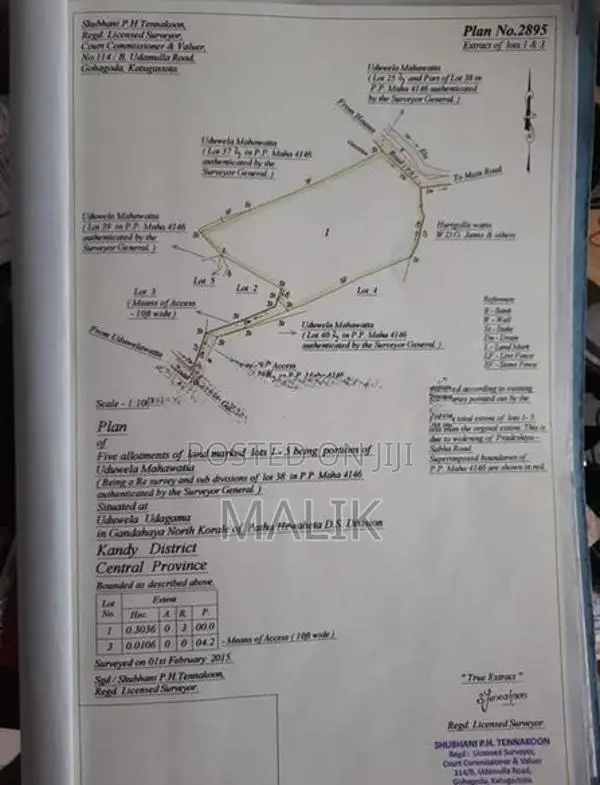 Shubhani P.H.Tennakoon,
Regd. Licensed Surveyor,
Court Commissioner & Valuer,
No.114 / B, Udamulla Road,
Gohagoda, Katugastota.
Plan No.2895
Extract of lots 1 & 3
Uduwela Mahawatta
( Lot 25 and Part of Lot 38 in
P.P. Maha 4146 authenticated
by the Surveyor General. )
From House
Road
Ela
To Main Road
Uduwela Mahawatta
( Lot 37 in P.P. Maha 4146
authenticated by the
Surveyor General. )
Uduwela Mahawatta
( Lot 39 in P.P. Maha 4146
authenticated by the
Surveyor General. )
1
Hurigolla watta
W.D.G. Jamis & others
Lot 5
Lot 2
Lot 4
Lot 3
( Means of Access
- 10ft wide )
Uduwela Mahawatta
( Lot 40 in P.P. Maha 4146
authenticated by the Surveyor General. )
From Uduwelawatta
Access
P.P. Maha 4146
Reference
B - Bank
W - Wall
St - Stake
Dn - Drain
L - Land Mark
LF - Live Fence
SF - Stone Fence
according to existing
pointed out by the
total extent of lots 1- 5
less than the original extent. This is
due to widening of Pradeshiya -
Sabha Road.
Superimposed boundaries of
P.P. Maha 4146 are shown in red.
Scale - 1:1000
Plan
of
Five allotments of land marked lots 1- 5 being portions of
Uduwela Mahawatta
( Being a Re survey and sub divisions of lot 38 in P.P. Maha 4146
authenticated by the Surveyor General. )
Situated at
Uduwela Udagama
in Gandahaya North Korale of Patha Hewaheta D.S. Division
Kandy District
Central Province
Bounded as described above.
Lot No. Extent
Hec. A R. P.
1 0.3036 0 3 00.0
3 0.0106 0 0 04.2 - Means of Access ( 10ft wide )
Surveyed on 01st February 2015.
Sgd / Shubhani P.H.Tennakoon,
Regd. Licensed Surveyor.
" True Extract "
Regd. Licensed Surveyor
SHUBHANI P.H. TENNAKOON
Regd : Licensed Surveyor,
Court Commissioner & Valuer
114/B, Udamulla Road,
Gohagoda, Katugastota.
POSTED ON JIJI
MALIK